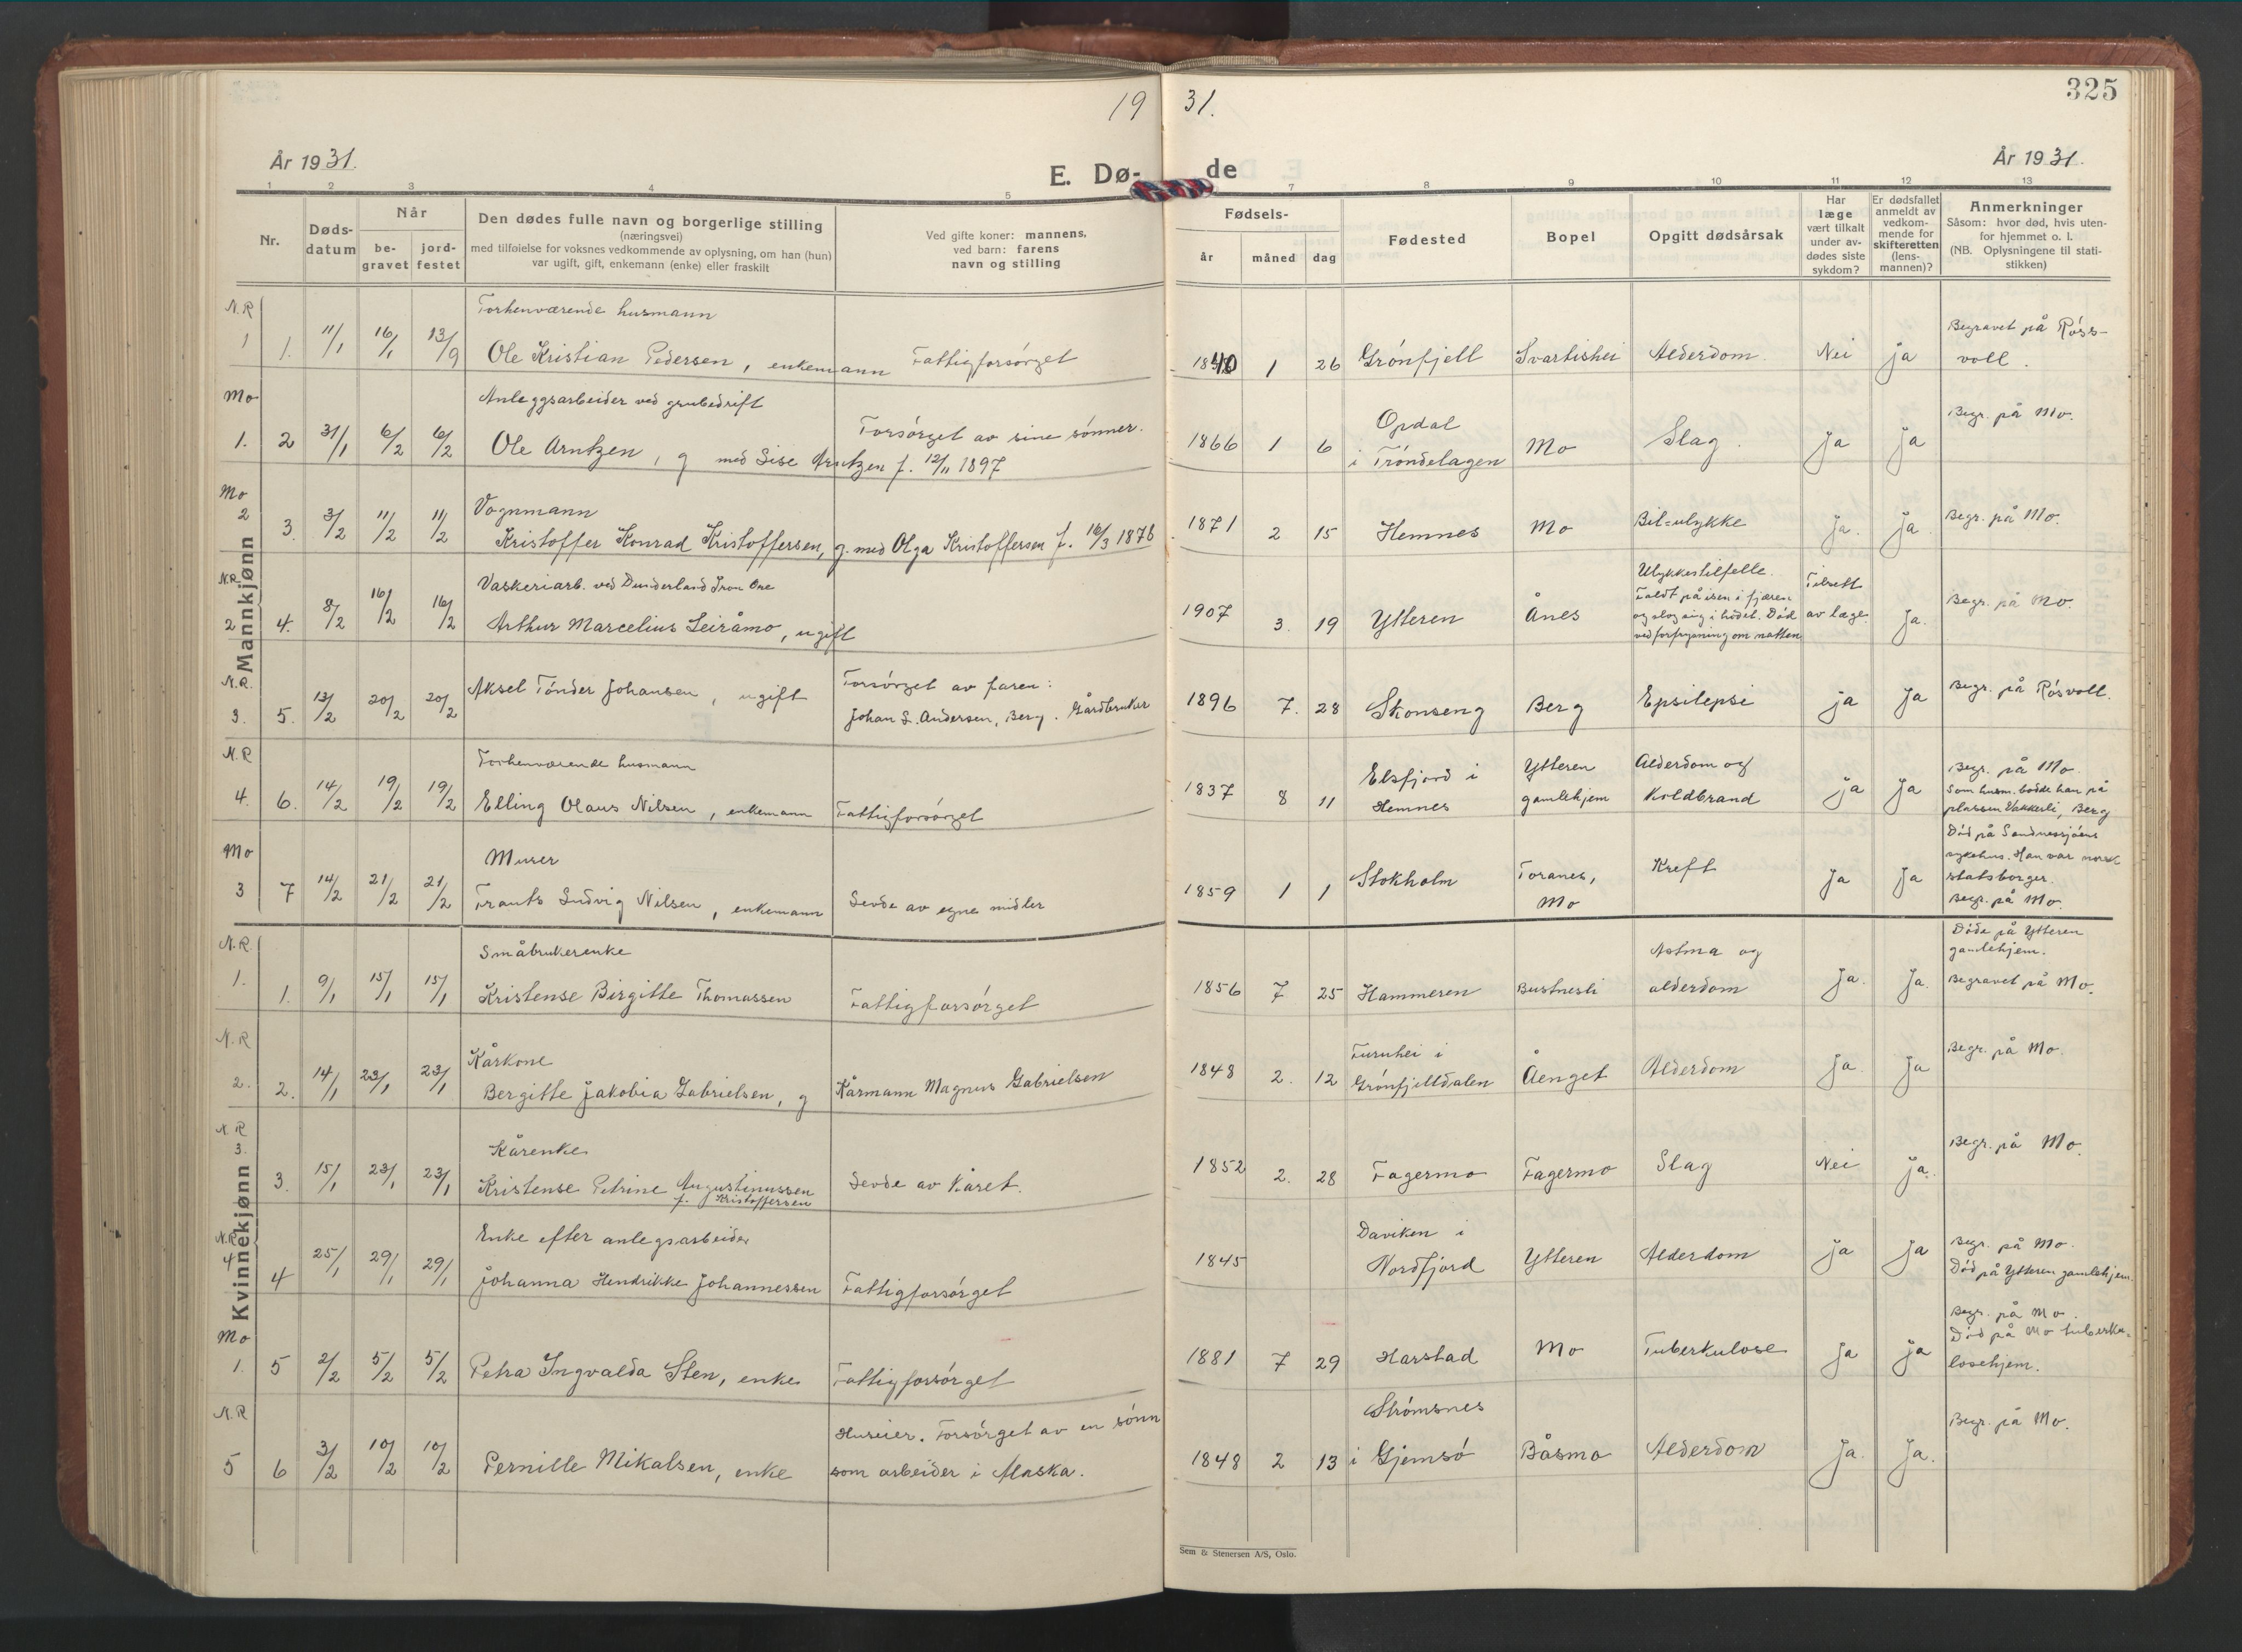 19 31.
325
År 1931.
E. Dø-de
År 1931.
1 2 3 4 5 7 8 9 10 11 12 13
Nr.
Døds-
datum
Når
be-
gravet
jord-
festet
Den dødes fulle navn og borgerlige stilling
(næringsvei)
med tilføielse for voksnes vedkommende av oplysning, om han (hun)
var ugift, gift, enkemann (enke) eller fraskilt
Ved gifte koner: mannens,
ved barn: farens
navn og stilling
Fødsels-
år måned dag
Fødested
Bopel
Opgitt dødsårsak
Har
læge
vært tilkalt
under av-
dødes siste
sykdom?
Er dødsfallet
anmeldt av
vedkom-
mende for
skifteretten
(lens-
mannen)?
Anmerkninger
Såsom: hvor død, hvis uten-
for hjemmet o. l.
(NB. Oplysningene til stati-
stikken)
Mannkjønn
N.R
1 1. 11/1 16/1 13/9
Forhenværende husmann
Ole Kristian Pedersen, enkemann
Fattigforsørget
1840 1 26 Grønfjell Svartishei Alderdom. Nei ja
Begravet på Røss-
voll.
Mo
1. 2 31/1 6/2 6/2
Anleggsarbeider ved grubedrift
Ole Arntzen, g med Lise Arntzen f. 12/11 1897
Forsørget av sine sønner.
1866 1 6
Opdal
i Trøndelagen
Mo Slag. Ja Ja
Begr. på Mo.
Mo
2 3. 3/2 11/2 11/2
Vognmann
Kristoffer Konrad Kristoffersen, g. med Olga Kristoffersen f. 16/3 1878
1871 2 15 Hemnes Mo Bil=ulykke Ja. Ja.
Begr. på Mo.
N.R.
2 4. 8/2 16/2 16/2
Vaskeriarb. ved Dunderland Iron Ore
Arthur Marcelius Leiråmo, ugift
1907 3. 19 Ytteren Ånes
Ulykkestilfelle.
Faldt på isen i fjæren
og slog sig i hodet. Død
ved forfrysning om natten
av læge Ja.
Begr. på Mo.
N.R.
3. 5. 13/2 20/2 20/2
Aksel Tønder Johansen, ugift
Forsørget av faren:
Johan L. Andersen, Berg. Gårdbruker
1896 7. 28 Skonseng Berg Epsilepsi ja Ja
Begr. på Røsvoll.
N.R
4. 6. 14/2 19/2 19/2
Forhenværende husmann
Elling Olaus Nilsen, enkemann
Fattigforsørget
1837 8 11
Elsfjord i
Hemnes
Ytteren
gamlehjem
Alderdom og
Koldbrand
ja Ja
Begr. på Mo.
Som husm. bodde han på
plassen Vakkerli, Berg
Mo
3 7 14/2 21/2 21/2
Murer
Frants Ludvig Nilsen, enkemann
Levde av egne midler
1859 1 1 Stokholm
Toranes,
Mo
Kreft Ja Ja
Død på Sandnessjøens
sykehus. Han var norsk
statsborger.
Begr. på Mo.
Kvinnekjønn
N.R.
1. 1. 9/1 15/1 15/1
Småbrukerenke
Kristense Birgitte Thomassen
Fattigforsørget
1856 7 25 Hammeren Bustnesli
Astma og
alderdom
Ja. Ja.
Døde på Ytteren
gamlehjem.
Begravet på Mo.
N.R
2. 2. 14/1 23/1 23/1
Kårkone
Bergitte Jakobia Gabrielsen, g
Kårmann Magnus Gabrielsen
1848 2. 12
Furuhei i
Grønfjelldalen
Åenget Alderdom Ja. Ja
Begr. på Mo.
N.R
3. 3. 15/1 23/1 23/1
Kårenke
Kristense Petrine Augustinussen
f. Kristoffersen
Levde av Kåret.
1852 2. 28 Fagermo Fagermo Slag Nei ja.
Begr. på Mo.
N.R.
4 4 25/1 29/1 29/1
Enke efter anlegsarbeider
Johanna Hendrikke Johannessen
Fattigforsørget
1845
Daviken i
Nordfjord
Ytteren Alderdom Ja Ja
Begr. på Mo.
Død på Ytteren gamlehjem.
Mo
1. 5 2/2 5/2 5/2
Petra Ingvalda Sten, enke
Fattigforsørget
1881 7 29 Harstad Mo Tuberkulose Ja ja
Begr. på Mo.
Død på Mo tuberku-
losehjem.
N.R
5 6 3/2 10/2 10/2
Pernille Mikalsen, enke
Huseier. Forsørget av en sønn
som arbeider i Alaska.
1848 2 13
Strømsnes
i Gjemsø
Båsmo Alderdom Ja. Ja.
Begr. på Mo.
Sem & Stenersen A/S, Oslo.